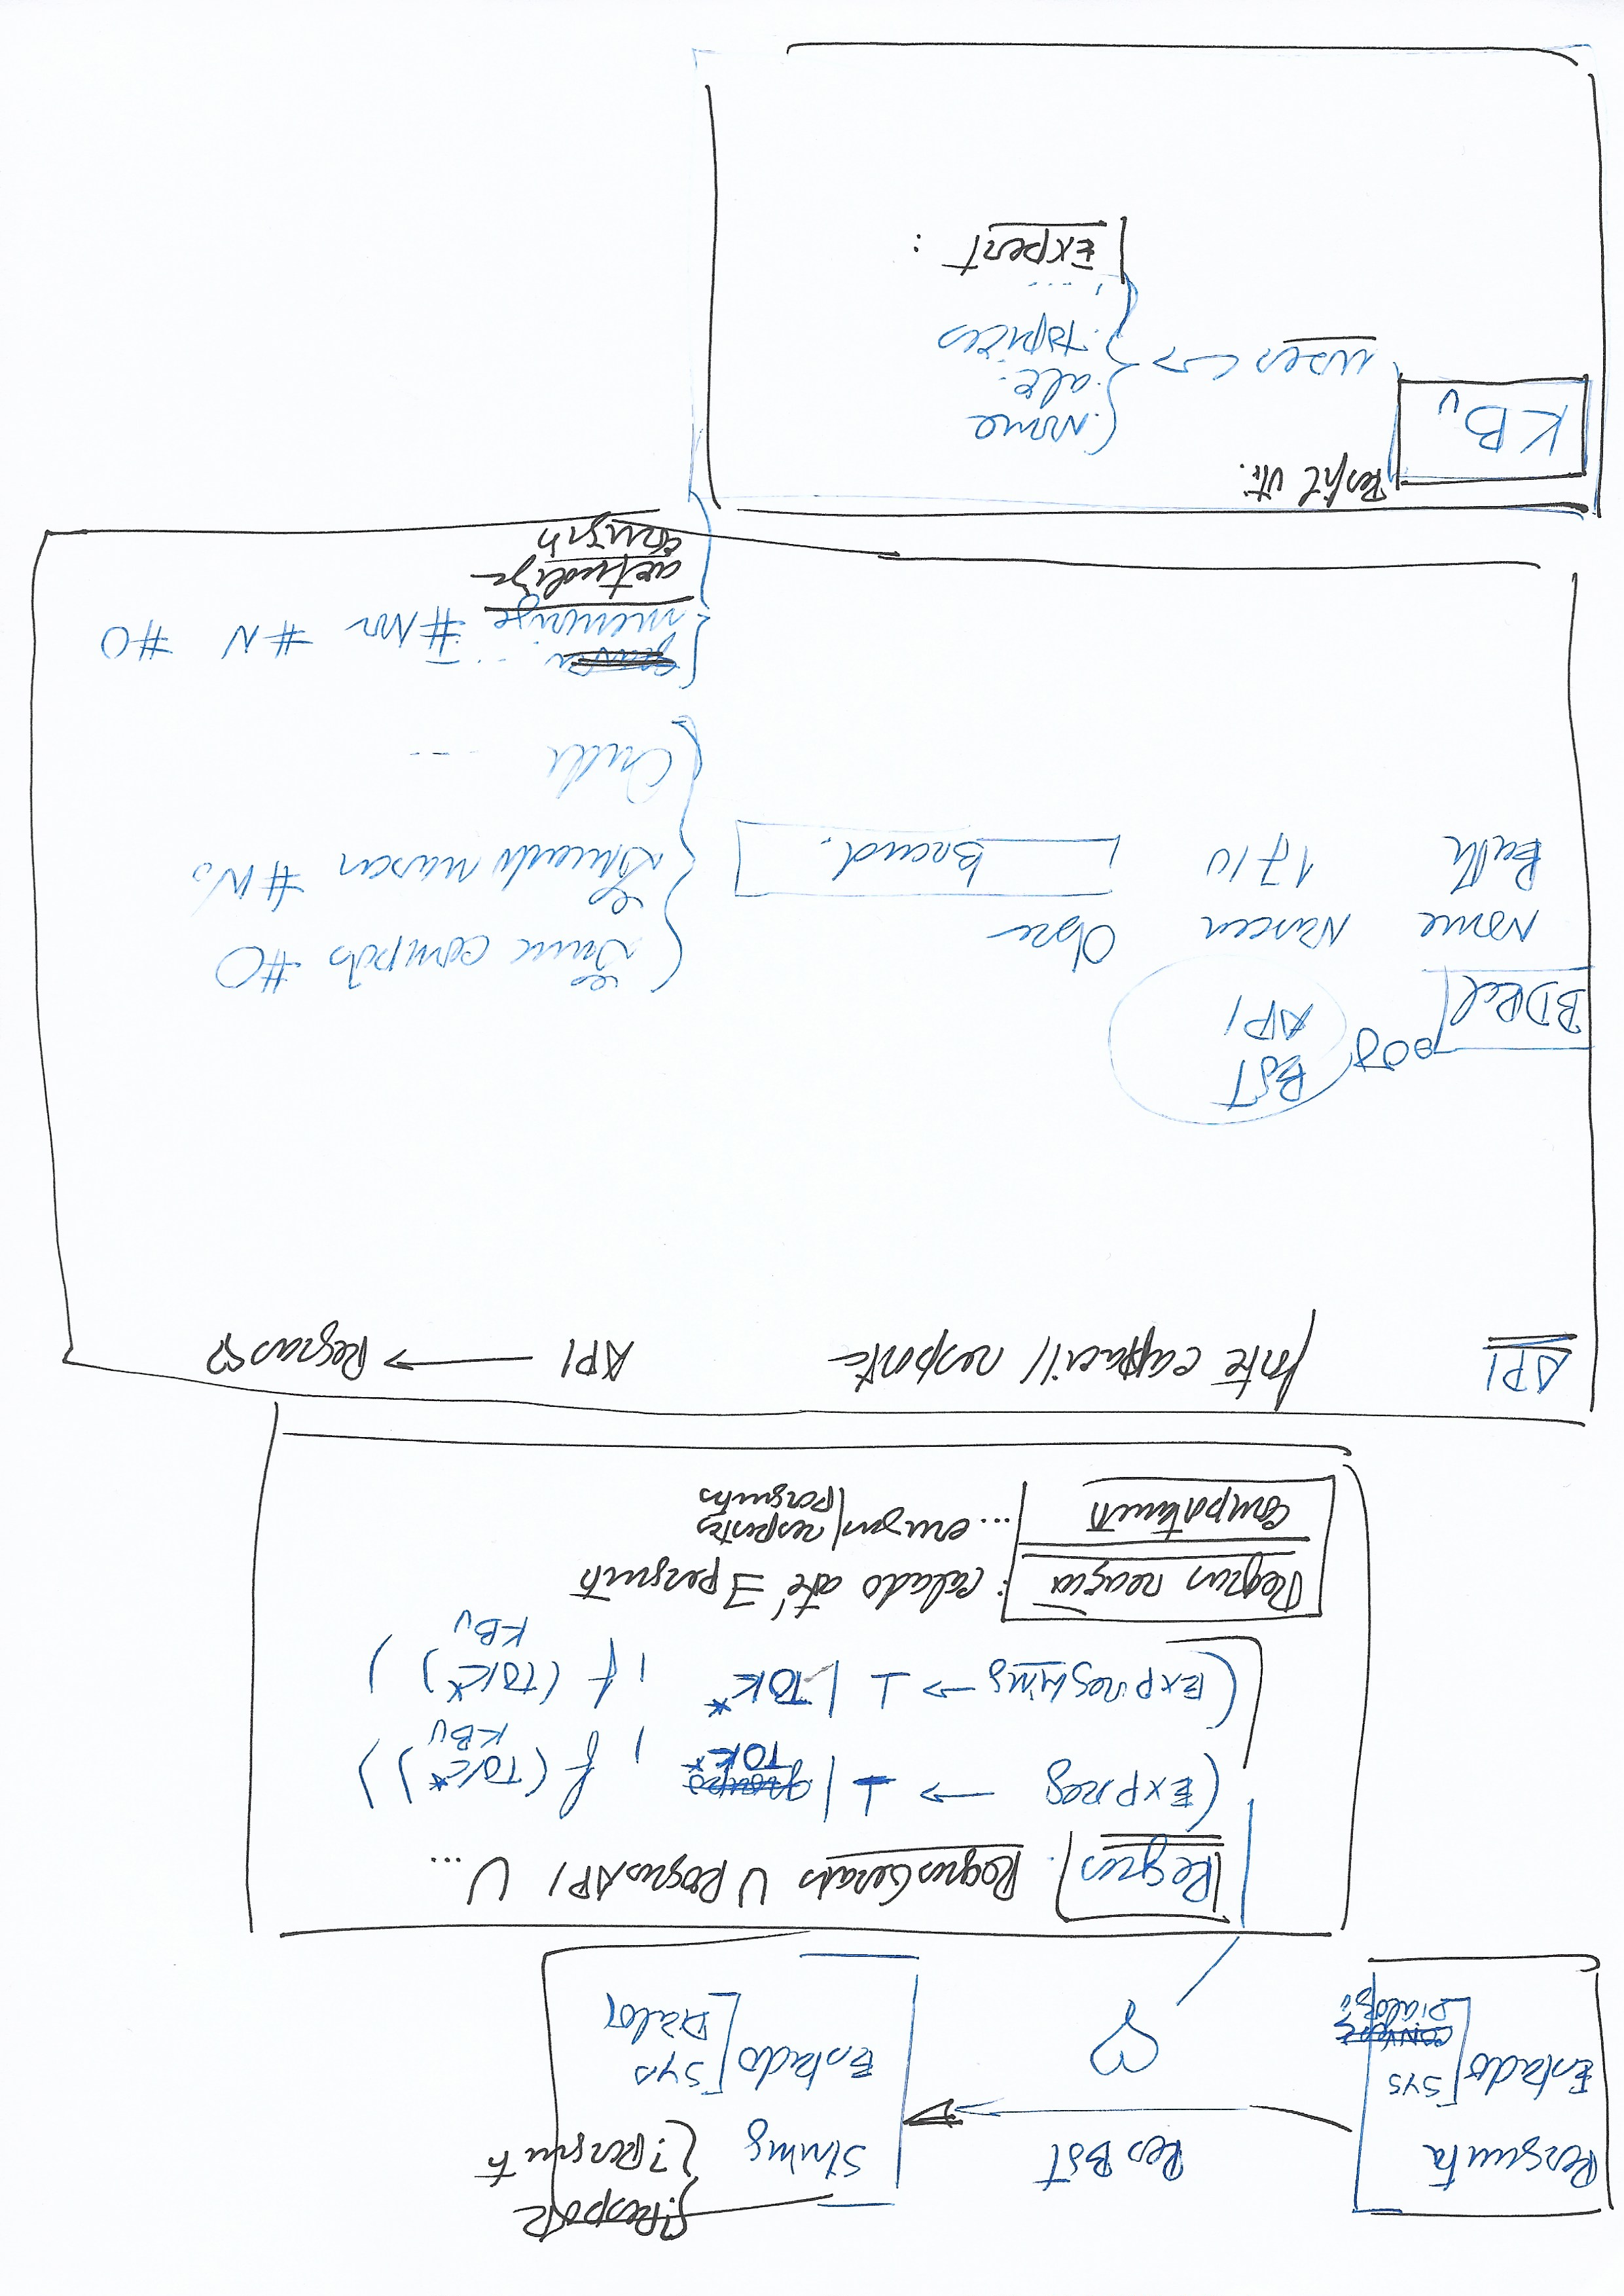 Pergunta
Estado [ sys
Dialogo
Res Bot
String { ?Respost
{ ?Pergunt
Estado [ Sys
Dialog
Regras . RegrasGerais U RegrasAPI U ...
(Expreg → ⊥ | TOK* , f (TOK*))
KBU
(Expregling → ⊥ | TOK* , f (TOK*))
KBU
Regras reação : calado até ∃ pergunt
comportament ... respostas
perguntas
API forte resposta API → Regras♡
BOT
API
BDRel
Nome Nascen Obra
Bach 1710 Brand.
compôs #O
nasceu #No
Onde ...
memorize #Nor #N #O
actualize
corrigir
KBU Perfil Uti.
user ↔ { . Nome
. topicos
. ...
Expert :